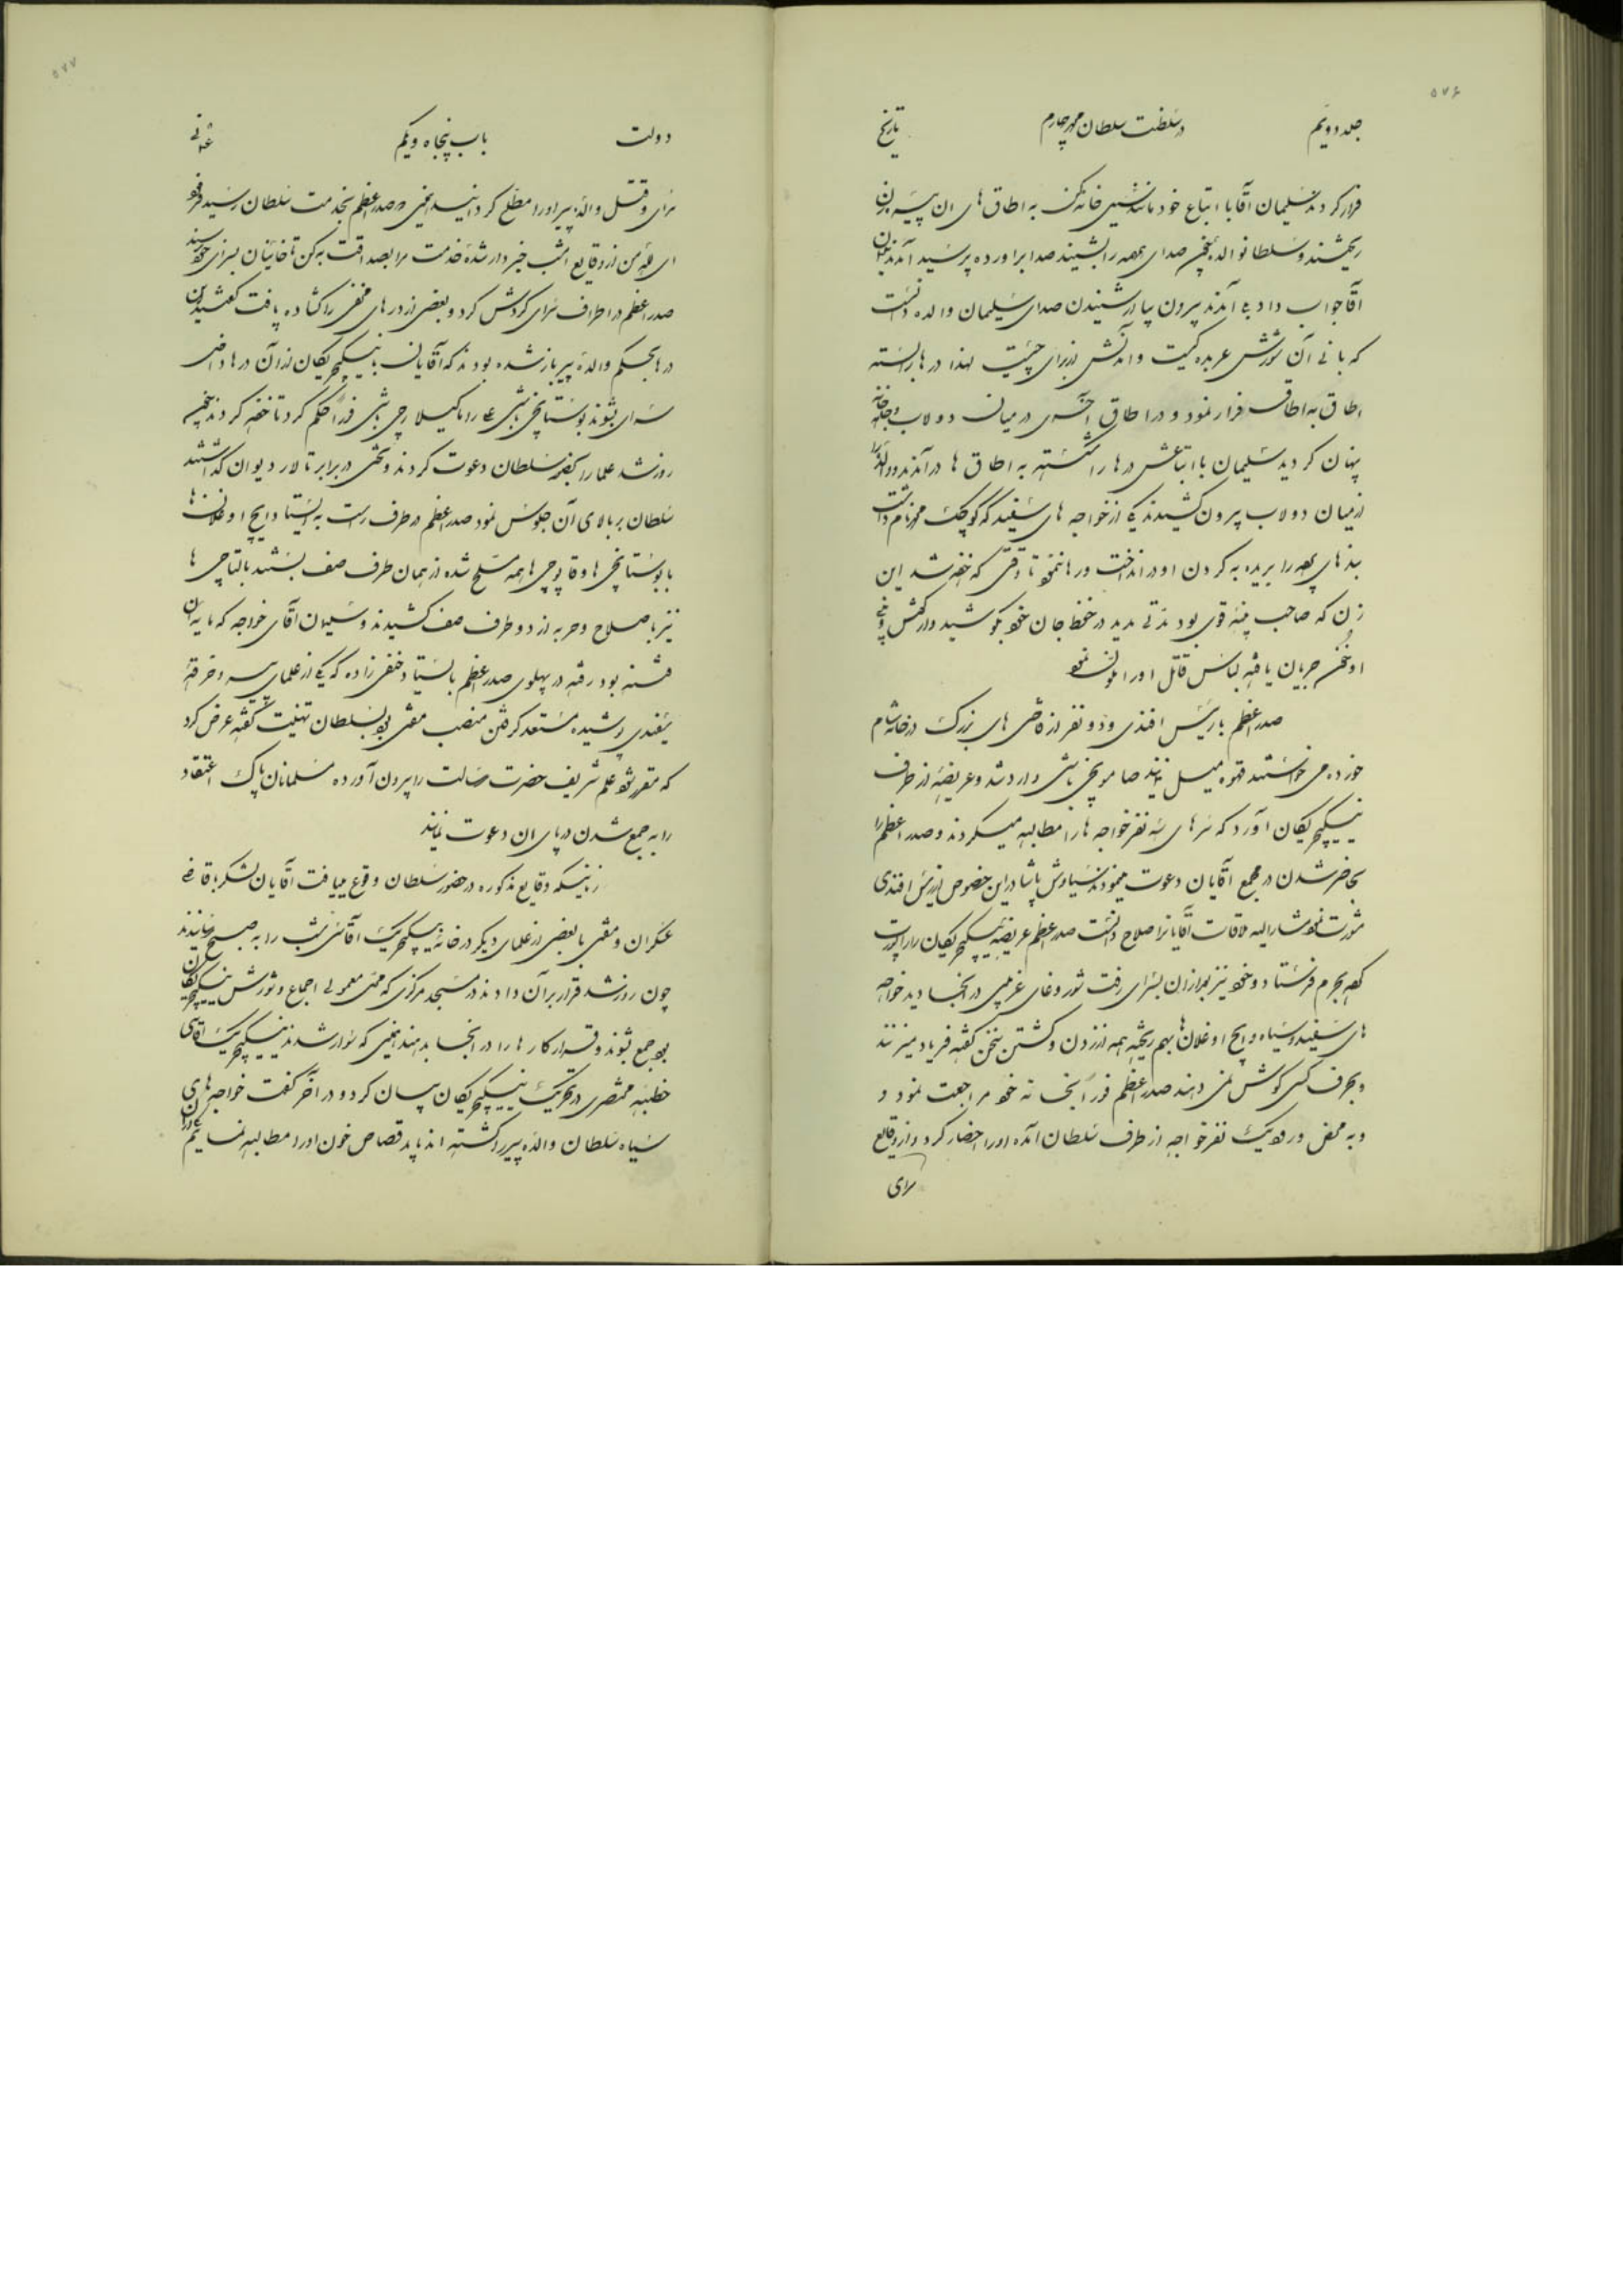 ۵۷۶
جلد دویم در سلطنت سلطان محمد چهارم تاریخ
فرار کردند سلیمان آقا با اتباع خود به اطاق های ان پیره زن
ریختند و سلطان والده صدای همهمه را بشنید صدا برآورده پرسید آمدند
آقا جواب داد بلی آمدند بیرون بیا از شنیدن صدای سلیمان والده دانست
که بانی آن شورش عربده کیست و آمدنش از برای چیست لهذا درها را بسته
اطاق به اطاق فرار نمود و در اطاق آخری در میان دولاب
پنهان گردید سلیمان با اتباعش درها را شکسته به اطاق ها درآمدند و والده را
از میان دولاب بیرون کشیدند یکی از خواجه های سفید که کوچک محمد نام داشت
بندهای پرده را بریده به گردن او در انداخت و رها ننمود تا وقتی که خفه شد این
زن که صاحب بنیه قوی بود مدتی مدید در حفظ جان خود کوشید و از گوش و بینی
او خون جریان یافته لباس قاتل او را ملوث نمود
صدر اعظم با رئیس افندی و دو نفر از قاضی های بزرگ در خانه شام
خورده می خواستند قهوه میل نمایند صامسونجی باشی وارد شد و عریضه از طرف
ینیچریکان آورد که سرهای سه نفر خواجه ها را مطالبه میکردند و صدر اعظم را
بحاضر شدن در مجمع آقایان دعوت مینمودند سیاوش پاشا در این خصوص از رئیس افندی
مشورت نمود مشارالیه ملاقات آقایان را صلاح ندانست صدر اعظم عریضه ینیچریکان را
بحرم فرستاد و خود نیز بعد از ان بسرای رفت شور و غوغای غریبی در آنجا دید خواجه
های سفید و سیاه و ایچ اوغلان ها بهم ریخته همه از زدن و کشتن سخن گفته فریاد میزنند
و بحرف کسی گوش نمی دهند صدر اعظم فوراً بخانه خود مراجعت نمود و
و به محض ورود یک نفر خواجه از طرف سلطان آمده او را احضار کرد و از وقایع
سرای
۵۷۷
دولت باب پنجاه و یکم عثمانی
سرای و قتل والده پیر او را مطلع گردانید همینکه صدر اعظم بخدمت سلطان رسید فرمود
ای لله من از وقایع امشب خبردار شده خدمت مرا بصداقت به کن تا خائنان بسزای خود رسند
صدر اعظم در اطراف سرای گردش کرد و بعضی از درهای مخفی را گشاده یافت
درها بحکم والده پیر باز شده بودند که آقایان با ینیچریکان از آن درها داخل
سرای شوند بوستانجی باشی علی را با کیلارجی باشی فوراً حکم کرد تا خفه کردند
روز شد علما را بحضور سلطان دعوت کردند و تختی در برابر تالار دیوان گذاشتند
سلطان بر بالای آن جلوس نمود صدر اعظم در طرف راست به ایستاد و ایچ اوغلان ها
با بوستانجی ها و قاپوچی ها همه مسلح شده از همان طرف صف بستند بالتاجی ها
نیز با سلاح و حربه از دو طرف صف کشیدند و سلیمان آقای خواجه که مایه آن
فتنه بود رفته در پهلوی صدر اعظم بایستاد حنفی زاده که یکی از علمای پیر و خرقه
سفیدی پوشیده مستعد گرفتن منصب مفتی بود بسلطان تهنیت گفته عرض کرد
که مقرر شود علم شریف حضرت رسالت را بیرون آورده مسلمانان پاک اعتقاد
را به جمع شدن در پای ان دعوت نمایند
زمانیکه وقایع مذکوره در حضور سلطان وقوع مییافت آقایان لشکر با قاضی
عسکران و مفتی با بعضی از علمای دیگر در خانه ینیچریک آقاسی شب را به صبح رسانیدند
چون روز شد قرار بر آن دادند در مسجد مرکزی که محل معمولی اجماع و شورش ینیچریکان
بود جمع شوند و قرار کارها را در انجا بدهند همینکه سوار شدند ینیچریک آقاسی
خطبه مختصری در تحریک ینیچریکان بیان کرد و در آخر گفت خواجه های
سیاه سلطان والده پیر را کشته اند باید قصاص خون او را مطالبه نمائیم